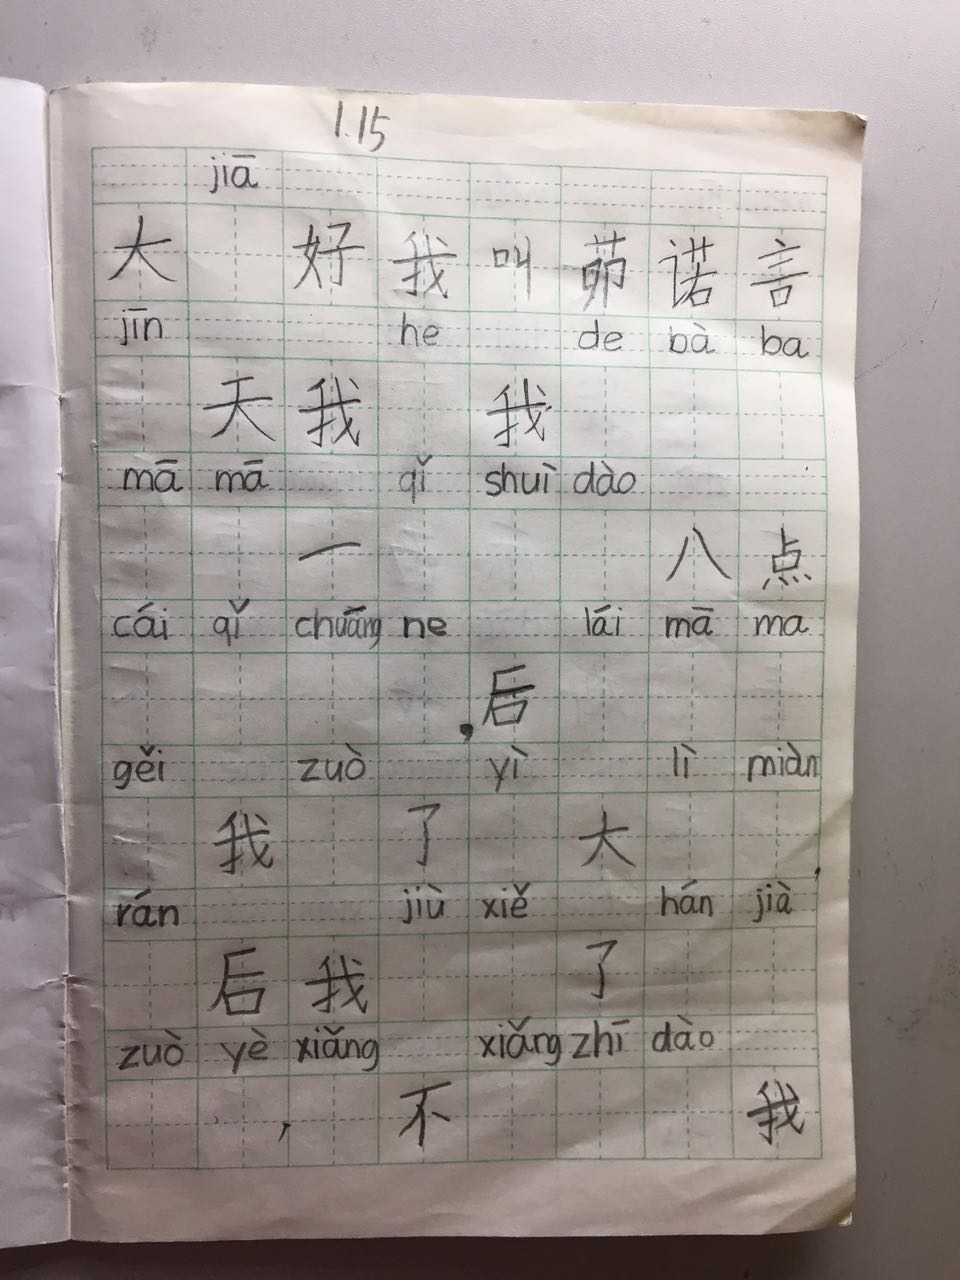 1.15
jiā
大 好 我 叫 茆 诺 言
jīn he de bà ba
天 我 我
mā mā qǐ shuì dào
一 八 点
cái qǐ chuāng ne lái mā ma
,后
gěi zuò yì lì miàn
我 了 大 ,
rán jiù xiě hán jià
后 我 了
zuò yè xiǎng xiǎng zhī dào
, 不 我